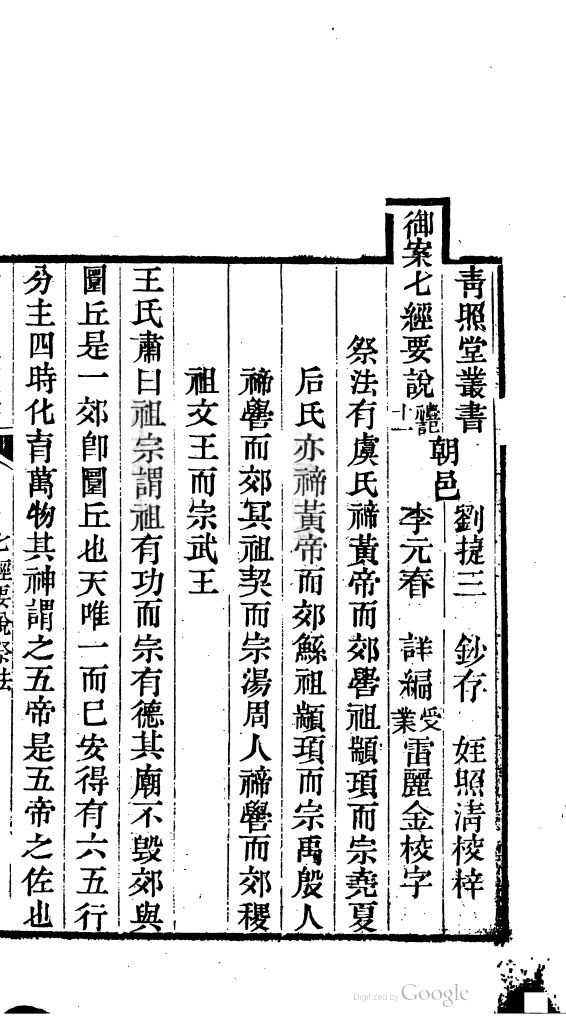 靑照堂叢書
劉捷三 鈔存 姪照清校梓
御案七經要說
禮記
十一
朝邑
李元春 詳編
受業
雷麗金校字
祭法有虞氏禘黃帝而郊嚳祖顓頊而宗堯夏
后氏亦禘黃帝而郊鯀祖顓頊而宗禹殷人
禘嚳而郊冥祖契而宗湯周人禘嚳而郊稷
祖文王而宗武王
王氏肅曰祖宗謂祖有功而宗有德其廟不毀郊與
圜丘是一郊卽圜丘也天唯一而已安得有六五行
分主四時化育萬物其神謂之五帝是五帝之佐也
七經要說祭法
Digitized by Google